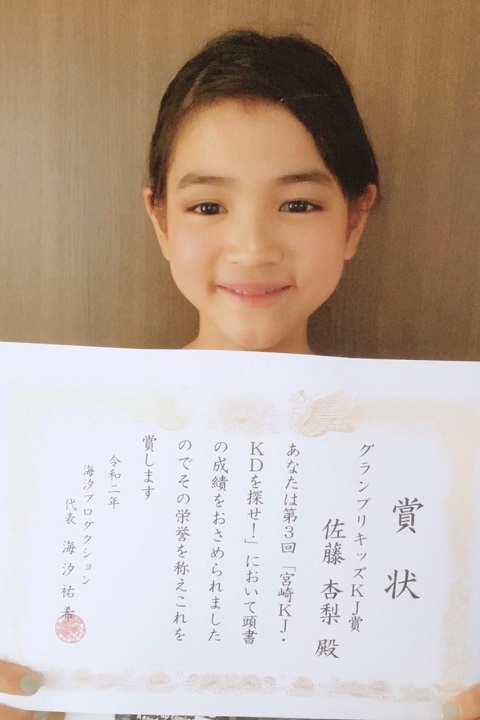 賞状
グランプリキッズKJ賞
佐藤 杏梨 殿
あなたは第3回「宮崎KJ・
KDを探せ!」において頭書
の成績をおさめられました
のでその栄誉を称えこれを
賞します
令和二年
海汐プロダクション
代表 海汐祐希